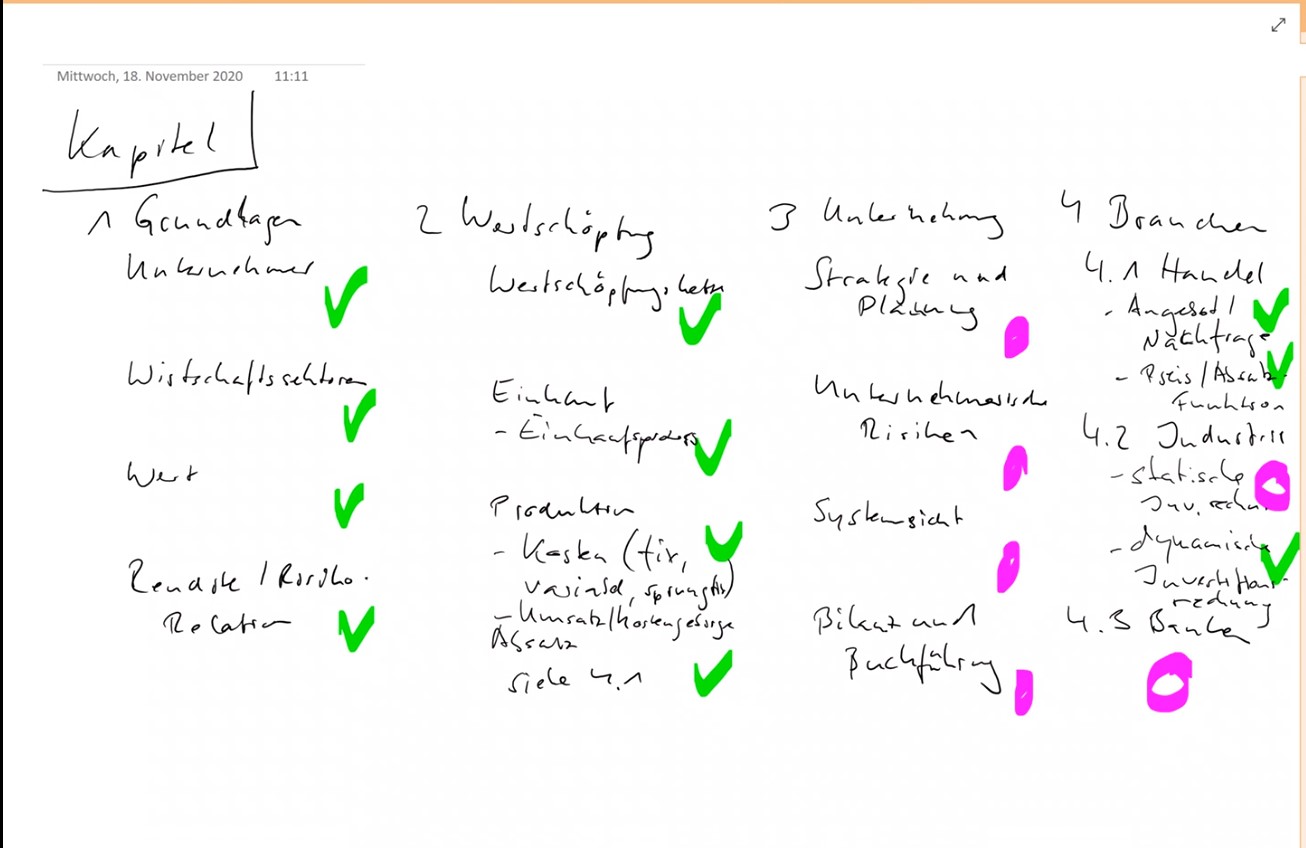 Mittwoch, 18. November 2020 11:11
Kapitel
1 Grundlagen
Unternehmer
Wirtschaftssektoren
Wert
Rendite / Risiko-
Relation
2 Wertschöpfung
Wertschöpfungskette
Einkauf
- Einkaufsprozess
Produktion
- Kosten (fix,
variabel, sprungfix)
- Umsatz/Kosten
Absatz
siehe 4.1
3 Unternehmung
Strategie und
Planung
Unternehmerische
Risiken
Systemsicht
Bilanz und
Buchführung
4 Branchen
4.1 Handel
- Angebot /
Nachfrage
- Preis/Absatz-
Funktion
4.2 Industrie
- statische
Inv. rechn.
- dynamische
Investitions-
rechnung
4.3 Banken